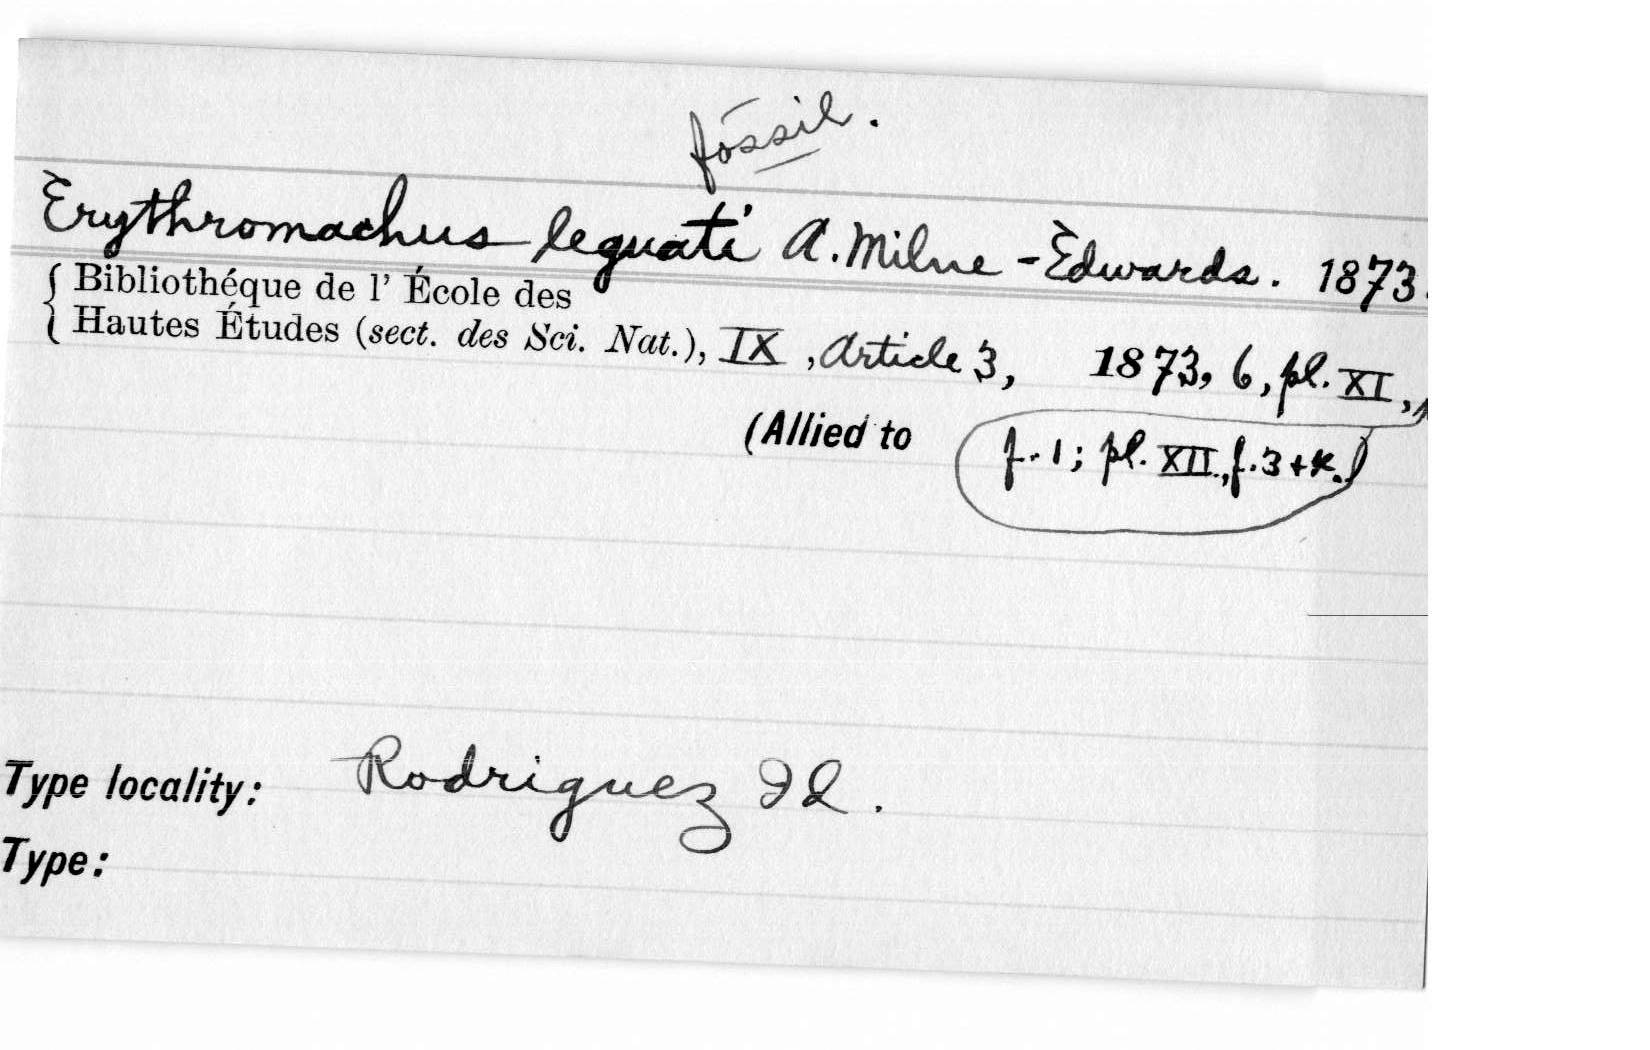 fossil.
Erythromachus leguati A. Milne-Edwards. 1873.
Bibliothéque de l' École des
Hautes Études (sect. des Sci. Nat.), IX, Article 3, 1873, 6, pl. XI,
(Allied to f. 1; pl. XII, f. 3 +
Type locality: Rodriguez Id.
Type: